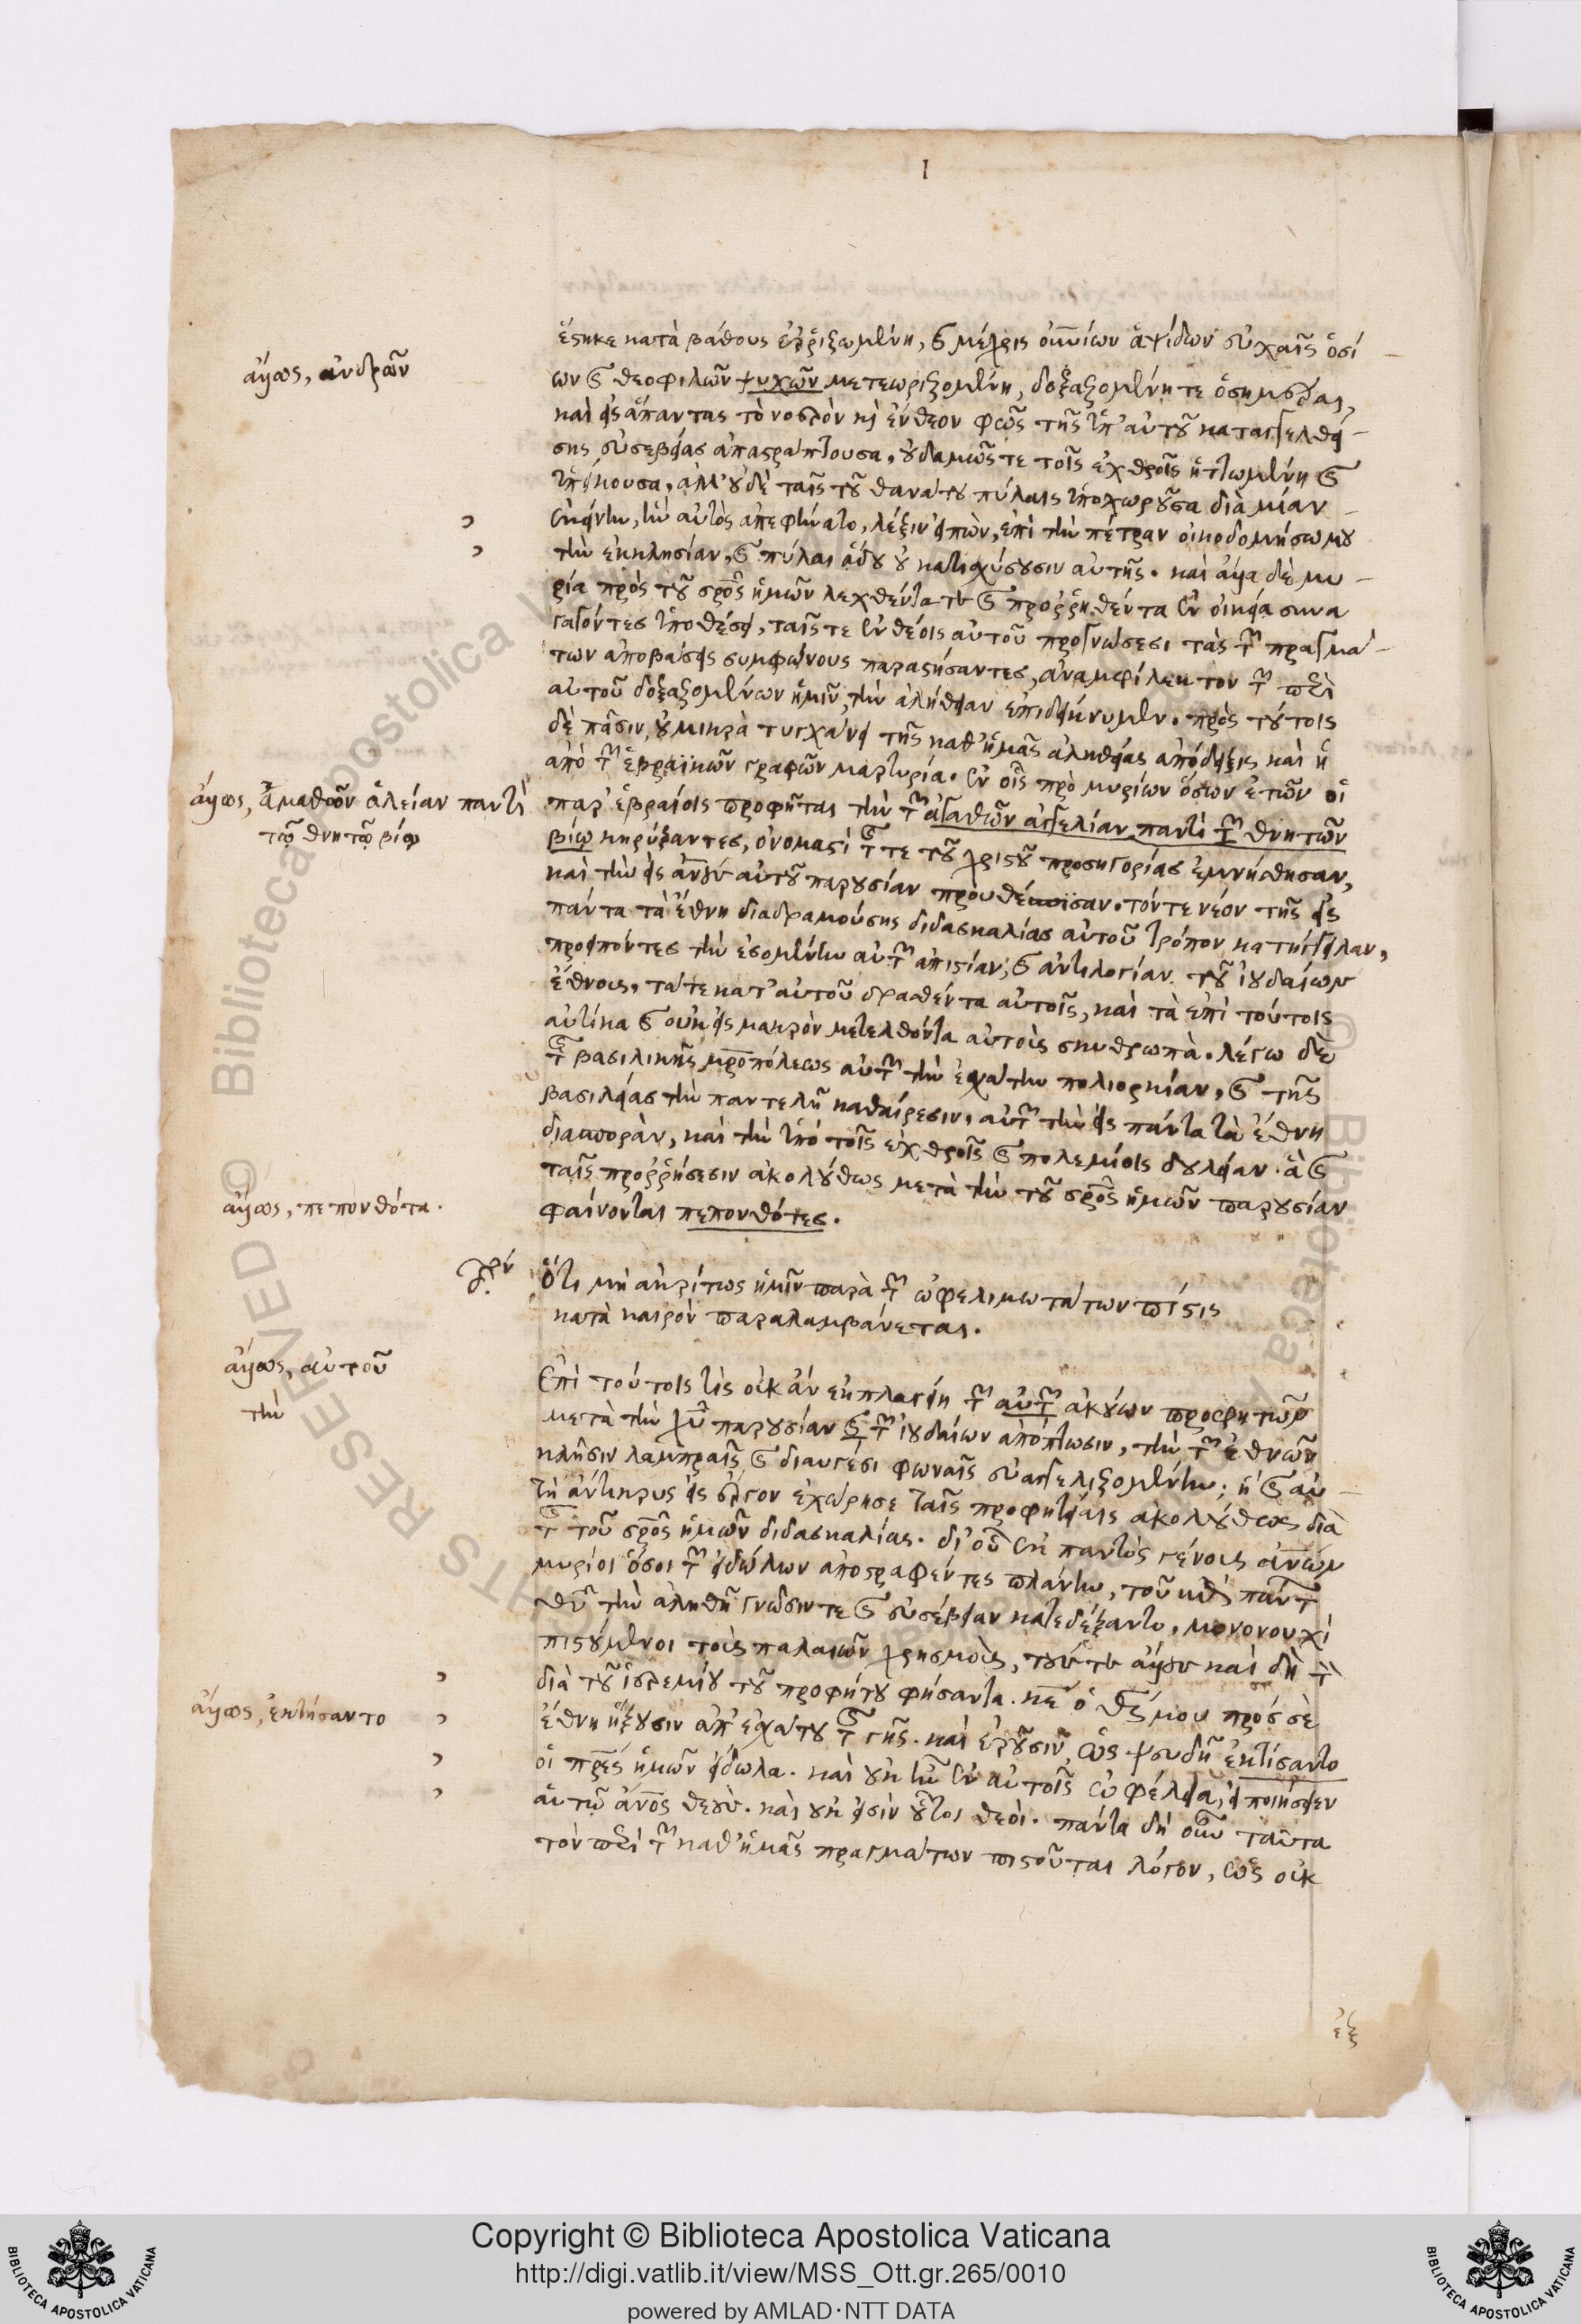 I
ἕστηκε κατὰ βάθους ἐρριζωμένη, καὶ μέχρις οὐνίων ἁψίδων εὐχαῖς ὁσί
ων καὶ θεοφιλῶν ψυχῶν μετεωριζομένη, δοξαζομένη τε ὁσημέραι,
καὶ εἰς ἅπαντας τὸ νοερὸν κὶ ἔνθεον φῶς τῆς ὑπ' αὐτοῦ καταγγελθεί-
σης εὐσεβείας ἀπαστράπτουσα, οὐδαμῶς τε τοῖς ἐχθροῖς ἡττωμένη καὶ
ὑπείκουσα, ἀλλ' οὐδὲ ταῖς τοῦ θανάτου πύλαις ὑποχωροῦσα διὰ μίαν
ἐκείνην, ἣν αὐτὸς ἀπεφήνατο, λέξιν εἰπὼν, ἐπὶ τὴν πέτραν οἰκοδομήσω μου
τὴν ἐκκλησίαν, καὶ πύλαι ᾅδου οὐ κατισχύσουσιν αὐτῆς. καὶ ἄλλα δὲ μυ-
ρία πρὸς τοῦ σρος ἡμῶν λεχθέντα τε καὶ προρρηθέντα ἐν οἰκείᾳ συνα
γαγόντες ὑποθέσει, ταῖς τε ἐνθέοις αὐτοῦ προγνώσεσι τὰς τῶν πραγμά-
των ἀποβάσεις συμφώνους παραστήσαντες, ἀναμφίλεκτον τῶν περὶ
αὐτοῦ δοξαζομένων ἡμῖν, τὴν ἀλήθειαν ἐπιδείκνυμεν. πρὸς τούτοις
δὲ πᾶσιν, οὐ μικρὰ τυγχάνει τῆς καθ' ἡμᾶς ἀληθείας ἀπόδειξις καὶ ἡ
ἀπὸ τῶν ἑβραϊκῶν γραφῶν μαρτυρία. ἐν οἷς πρὸ μυρίων ὅσων ἐτῶν οἱ
παρ' ἑβραίοις προφῆται τὴν τῶν ἀγαθῶν ἀγγελίαν παντὶ τῶν θνητῶν
βίῳ κηρύξαντες, ὀνομαστί τῆς τε τοῦ χριστοῦ προσηγορίας ἐμνήσθησαν,
καὶ τὴν εἰς ἀνους αὐτοῦ παρουσίαν προυθέσπισαν. τόν τε νέον τῆς εἰς
πάντα τὰ ἔθνη διαδραμούσης διδασκαλίας αὐτοῦ τρόπον κατήγγειλαν,
προειπόντες τὴν ἐσομένην αὐτῶν ἀπιστίαν, καὶ ἀντιλογίαν τοῦ ἰουδαίων
ἔθνους, τά τε κατ' αὐτοῦ δραθέντα αὐτοῖς, καὶ τὰ ἐπὶ τούτοις
αὐτίκα καὶ οὐκ εἰς μακρὸν μετελθόντα αὐτοὺς σκυθρωπὰ. λέγω δὲ
τῆς βασιλικῆς μροπόλεως αὐτῶν τὴν ἐσχάτην πολιορκίαν, καὶ τῆς
βασιλείας τὴν παντελῆ καθαίρεσιν, αὐτῶν τὴν εἰς πάντα τὰ ἔθνη
διασπορὰν, καὶ τὴν ὑπό τοῖς ἐχθροῖς καὶ πολεμίοις δουλείαν. ἃ καὶ
ταῖς προρρήσεσιν ἀκολούθως μετὰ τὴν τοῦ σρος ἡμῶν παρουσίαν
φαίνονται πεπονθότες.
Ὅτι μὴ ἀκρίτως ἡμῖν παρὰ τῶν ὠφελιμωτάτων πίστις
κατὰ καιρὸν παραλαμβάνεται.
Ἐπὶ τούτοις τίς οὐκ ἂν ἐκπλαγείη τῶν αὐτῶν ἀκούων προφητῶν
μετὰ τὴν χυ παρουσίαν καὶ τῶν ἰουδαίων ἀπόπτωσιν, τὴν τῶν ἐθνῶν
κλῆσιν λαμπραῖς καὶ διαυγέσι φωναῖς εὐαγγελιζομένων; ἣ καὶ αὐ-
τὴ ἄντικρυς εἰς ἔργον ἐχώρησε ταῖς προφητείαις ἀκολούθως διὰ
τῆς τοῦ σρος ἡμῶν διδασκαλίας. δι' οὗ ἐκ παντὸς γένους ἀνων
μυρίοι ὅσοι τῶν εἰδώλων ἀποστραφέντες πλάνην, τοῦ κατὰ πάντων
θυ τὴν ἀληθῆ γνῶσίν τε καὶ εὐσέβειαν κατεδέξαντο, μονονουχὶ
πιστούμενοι τοὺς παλαιῶν χρησμοὺς, τούς τε ἄλλους καὶ δὴ τὸν
διὰ τοῦ ἱερεμίου τοῦ προφήτου φήσαντα. κε ὁ θς μου πρός σὲ
ἔθνη ἥξουσιν ἀπ' ἐσχάτου τῆς γῆς. καὶ ἐροῦσιν, ὡς ψευδῆ ἐκτίσαντο
οἱ πρες ἡμῶν εἴδωλα. καὶ οὐκ ἦν ἐν αὐτοῖς ὠφέλεια, εἰ ποιήσειεν
αὑτῷ ἀνος θεοὺς. καὶ οὐκ εἰσὶν οὗτοι θεοὶ. πάντα δὴ οὖν ταῦτα
τὸν περὶ τῶν καθ' ἡμᾶς πραγμάτων πιστοῦται λόγον, ὡς οὐκ
ἐξ
ἄλλως, ἀνδρῶν
ἄλλως, ἀγαθῶν ἀγγελίαν παντὶ
τῷ θνητῷ βίῳ
ἄλλως, πεπονθότα.
ἄλλως, αὐτοῦ
τὴν
ἄλλως, ἐκτήσαντο
Copyright © Biblioteca Apostolica Vaticana
http://digi.vatlib.it/view/MSS_Ott.gr.265/0010
powered by AMLAD·NTT DATA
BIBLIOTECA APOSTOLICA VATICANA
BIBLIOTECA APOSTOLICA VATICANA